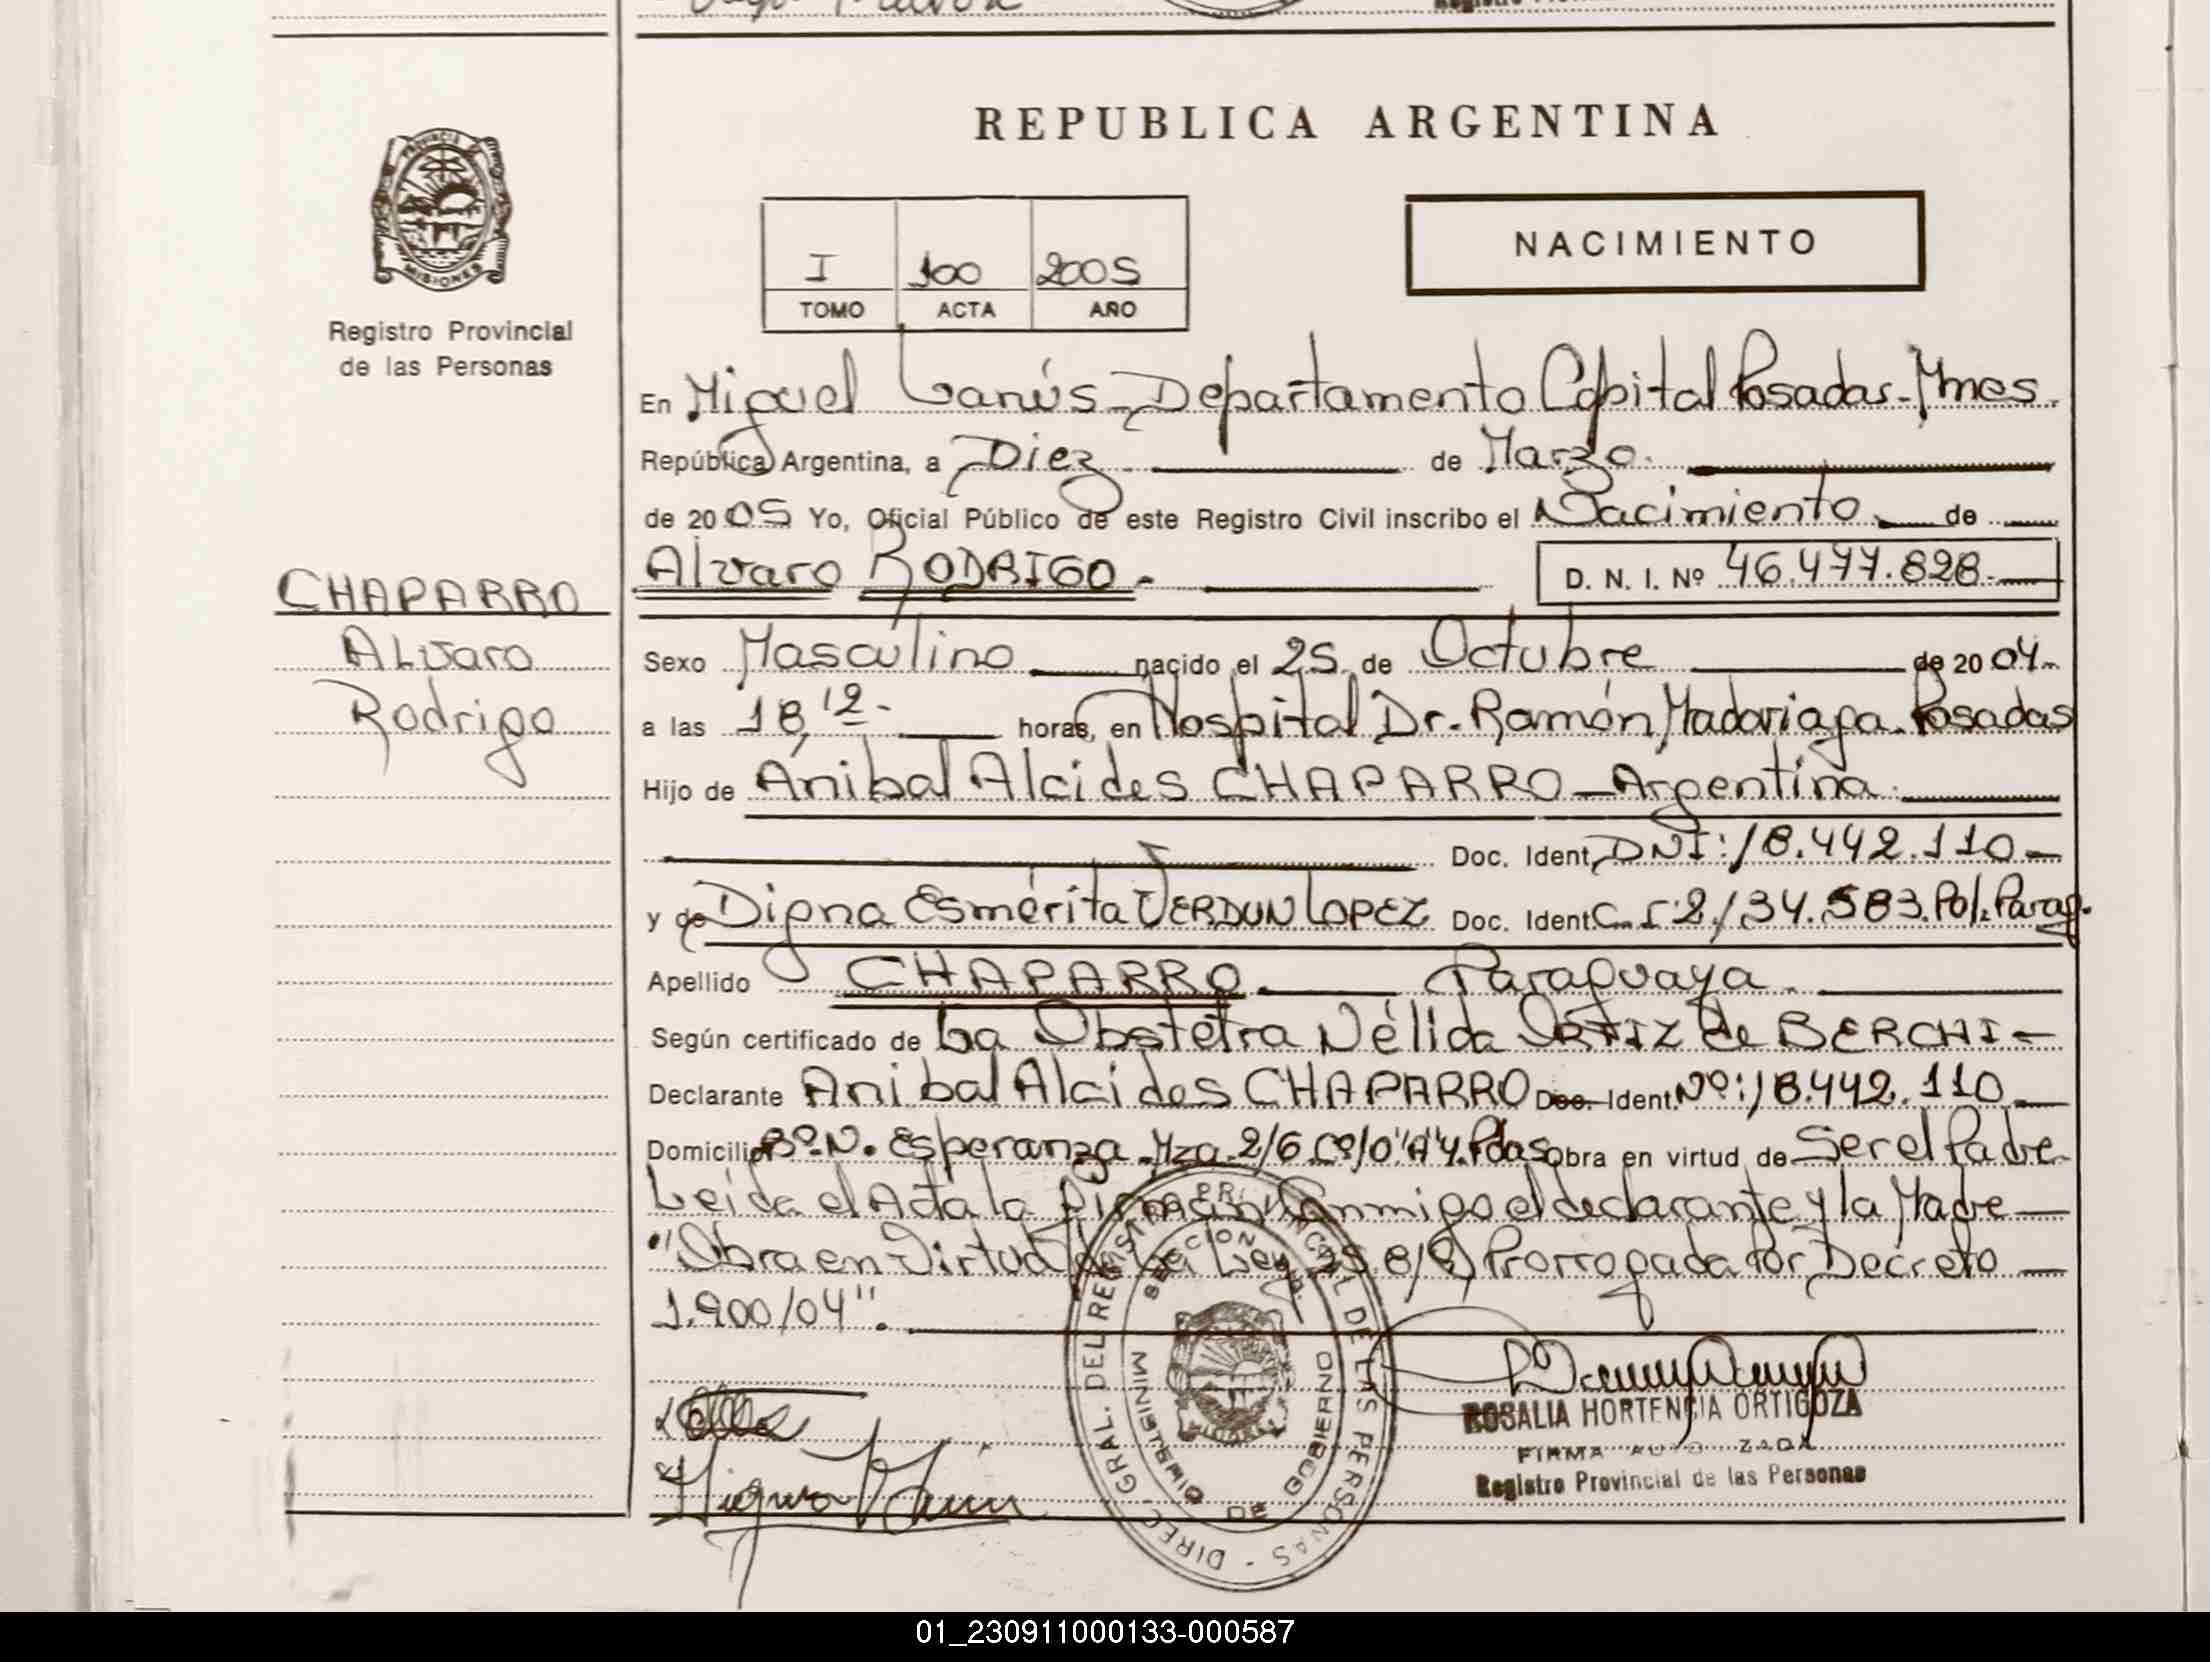 REPUBLICA ARGENTINA
PROVINCIA
MISIONES
Registro Provincial
de las Personas
I 100 2005
TOMO ACTA AÑO
NACIMIENTO
En Miguel Lanús - Departamento Capital Posadas - Mnes.
República Argentina, a Diez de Marzo.
de 2005 Yo, Oficial Público de este Registro Civil inscribo el Nacimiento de
Alvaro RODRIGO.- D. N. I. Nº 46.477.828.
CHAPARRO
Alvaro
Rodrigo
Sexo Masculino nacido el 25. de Octubre de 2004.
a las 18,12- horas, en Hospital Dr. Ramón Madariaga. Posadas
Hijo de Aníbal Alcides CHAPARRO - Argentina.
Doc. Ident. DNI: 18.442.110
y de Digna Esmérita VERDUN LOPEZ Doc. Ident. C.I 2.134.583. Pol. Parag.
Apellido CHAPARRO. Paraguaya.
Según certificado de La Obstetra Nélida ORTIZ de BERCHI-
Declarante Anibal Alcides CHAPARRO Doc. Ident. Nº: 18.442.110
Domicilio Bº N. Esperanza Mza. 2/6 Cº10 "A" 4. Pdas Obra en virtud de Ser el Padre
Leída el Acta la Firman Conmigo el declarante y la Madre
"Obra en Virtud de la Ley 25.819 Prorrogada Por Decreto
1.900/04".
DIREC. GRAL. DEL REGISTRO PROVINCIAL DE LAS PERSONAS
MINISTERIO DE GOBIERNO
ROSALIA HORTENCIA ORTIGOZA
FIRMA AUTORIZADA
Registro Provincial de las Personas
01_230911000133-000587